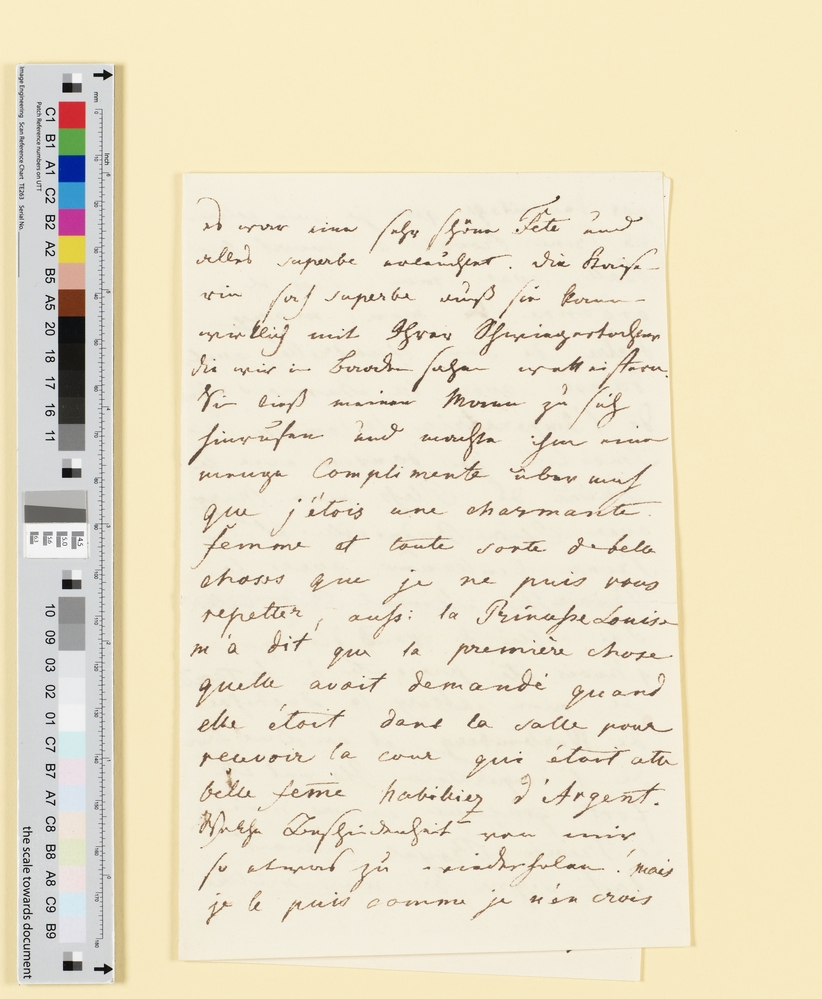 es war eine sehr schöne Fete und
alles superbe erleuchtet. die Kaise-
rin sah superbe auß sie kann
wirklich mit Ihrer Schwiegertochter
die wir in Baaden sahen wetteifern.
Sie ließ meinen Mann zu sich
hinrufen und machte ihm eine
menge Complimente über mich
que j'étois une charmante
femme et toute sorte de belle
choses que je ne puis vous
repetter, aussi la Prinçesse Louise
m'a dit que la première chose
quelle avait demandé quand
elle étoit dans la salle pour
recevoir la cour qui étoit cette
belle feme habiliez d'Argent.
Welche Unbescheidenheit von mir
so etwas zu wiederholen! mais
je le puis comme je n'en crois
C1 B1 A1 C2 B2 A2 B5 A5 20 18 17 16 11
10 09 03 02 01 C7 B7 A7 C8 B8 A8 C9 B9
Image Engineering Scan Reference Chart TE263 Serial No.
Patch Reference numbers on UTT
mm
inch
the scale towards document